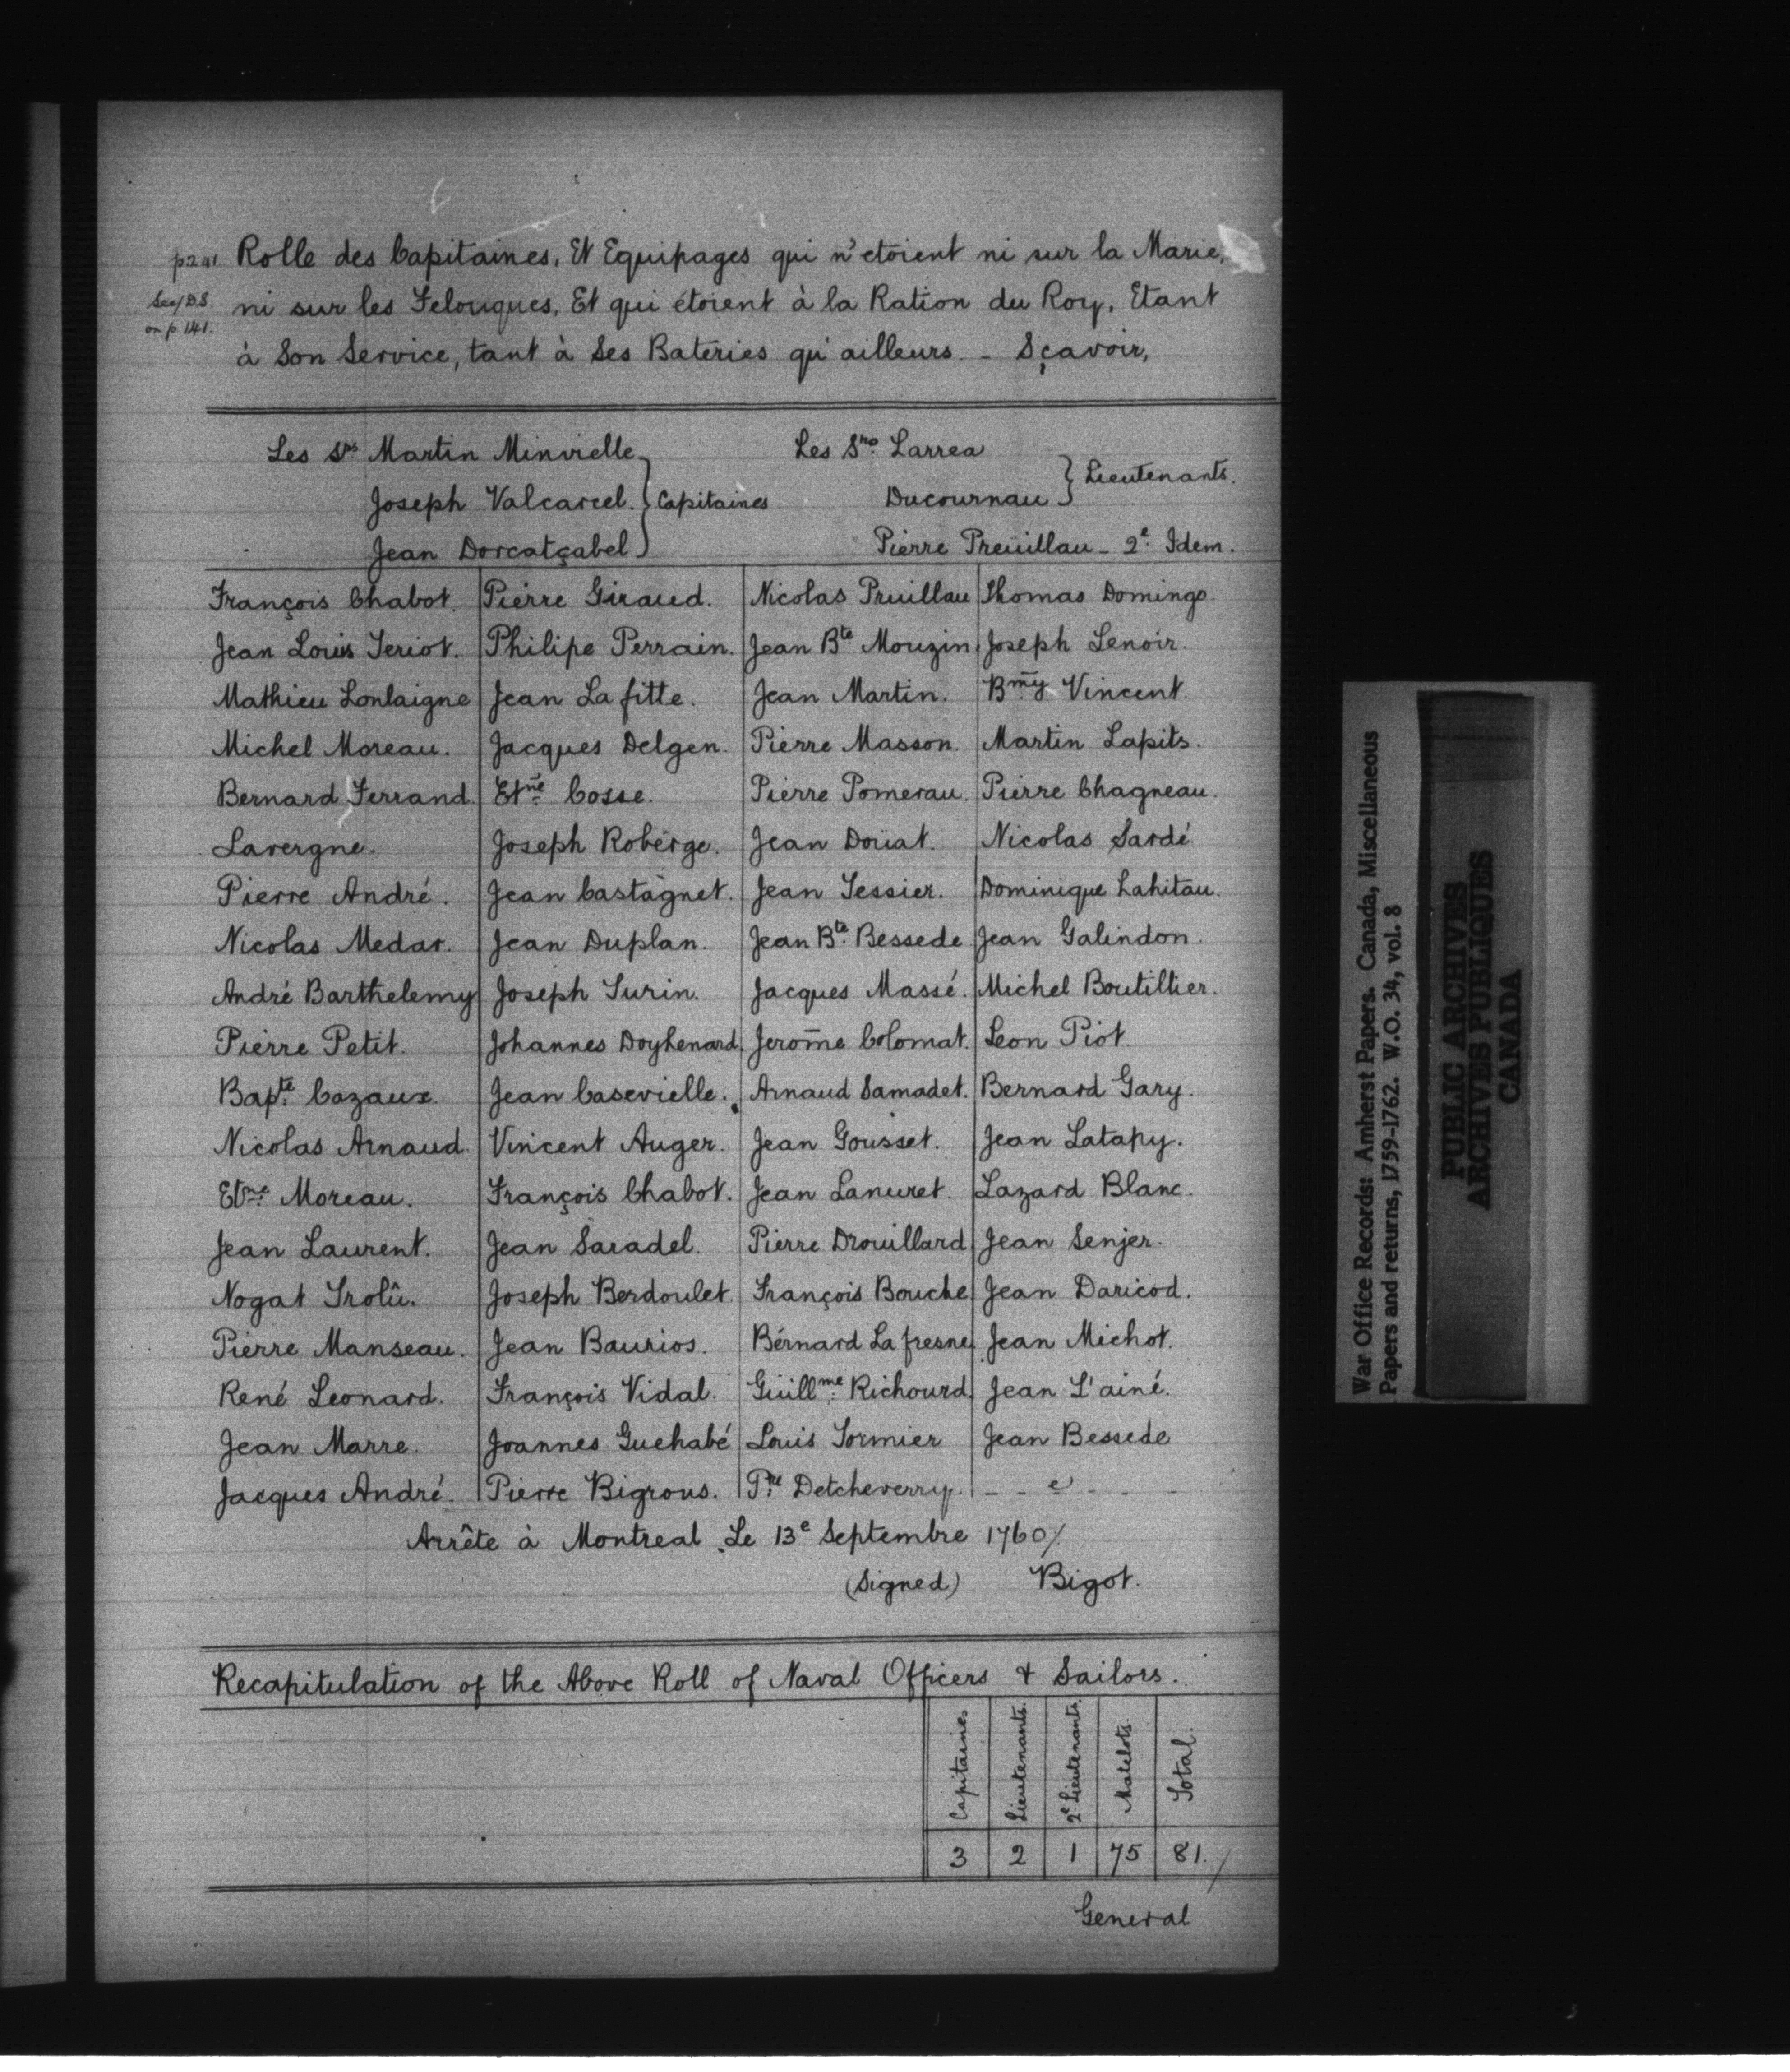 p241 Rolle des Capitaines, Et Equipages qui n'etoient ni sur la Marie,
See/D.S. ni sur les Felouques, Et qui étoient à la Ration du Roy, Etant
on p 141. à Son Service, tant à Ses Bateries qu'ailleurs - Sçavoir,
Les Srs Martin Minvielle Les Srs Larrea
Joseph Valcarcel. } Capitaines Ducournau } Lieutenants.
Jean Dorcatçabel Pierre Preüillau - 2e Idem.
François Chabot. Pierre Giraud. Nicolas Pruillau Thomas Domingo.
Jean Louis Teriot. Philipe Perrain. Jean Bte Mouzin Joseph Lenoir.
Mathieu Lonlaigne Jean Lafitte. Jean Martin. Bmy Vincent
Michel Moreau. Jacques Delgen. Pierre Masson. Martin Lapits.
Bernard Ferrand. Etne Cosse. Pierre Pomerau. Pierre Chagneau.
Lavergne. Joseph Roberge. Jean Douat. Nicolas Sardé
Pierre André. Jean Castagnet. Jean Tessier. Dominique Lahitau.
Nicolas Medar. Jean Duplan. Jean Bte Bessede Jean Galindon.
André Barthelemy Joseph Turin. Jacques Massé. Michel Boutillier.
Pierre Petit. Johannes Doyhenard. Jerome Colomat. Leon Piot.
Bapte Cazaux. Jean Casevielle. Arnaud Samadet. Bernard Gary.
Nicolas Arnaud. Vincent Auger. Jean Gousset. Jean Latapy.
Etne Moreau. François Chabot. Jean Lanuret. Lazard Blanc.
Jean Laurent. Jean Saradel. Pierre Drouillard Jean Senjer.
Nogat Trolû. Joseph Berdoulet. François Bouche Jean Daricod.
Pierre Manseau. Jean Baurios. Bérnard La fresne Jean Michot.
René Leonard. François Vidal. Guillme Richourd. Jean L'ainé.
Jean Marre. Joannes Guehabé Louis Tormier Jean Bessede
Jacques André. Pierre Bigrous. Pre Detcheverry.
Arrête à Montreal Le 13e Septembre 1760/.
(Signed) Bigot.
Recapitulation of the Above Roll of Naval Officers & Sailors.
Capitaines Lieutenants. 2e Lieutenants. Matelots. Total.
3 2 1 75 81./
General
War Office Records: Amherst Papers. Canada, Miscellaneous
Papers and returns, 1759-1762. W.O. 34, vol. 8
PUBLIC ARCHIVES
ARCHIVES PUBLIQUES
CANADA